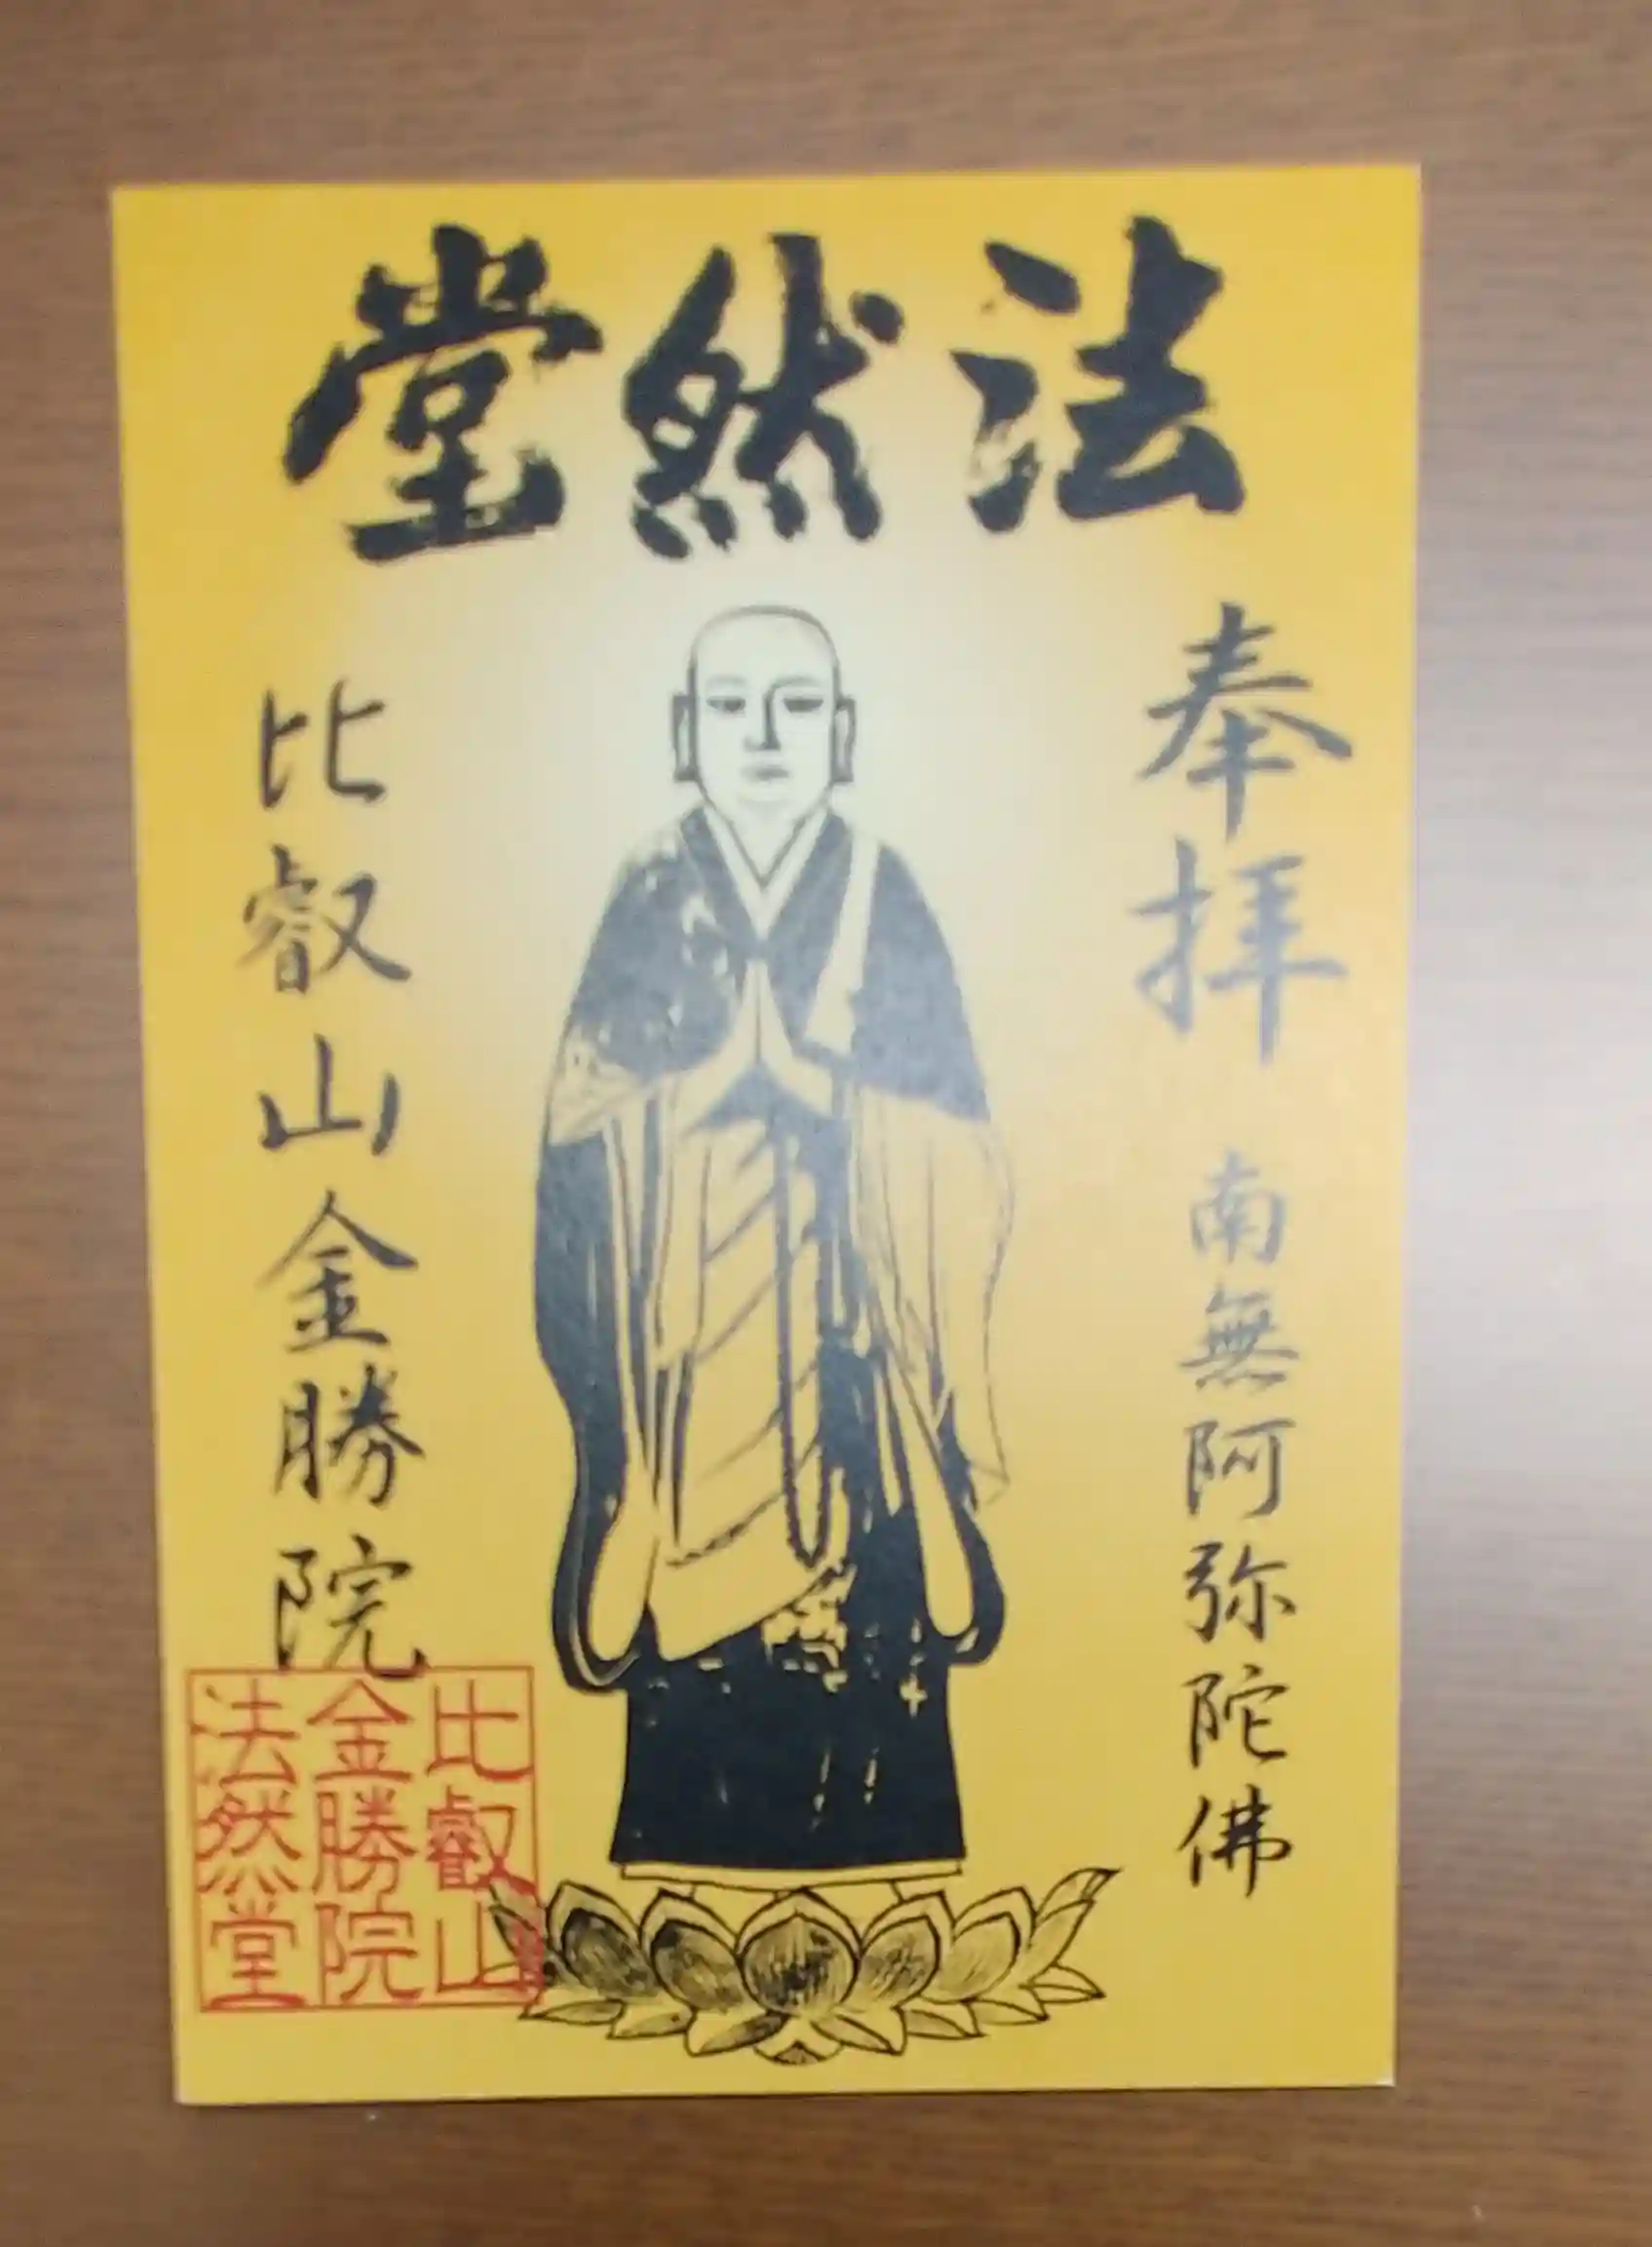 法然堂
奉拝 南無阿弥陀佛
比叡山金勝院
比叡山
金勝院
法然堂